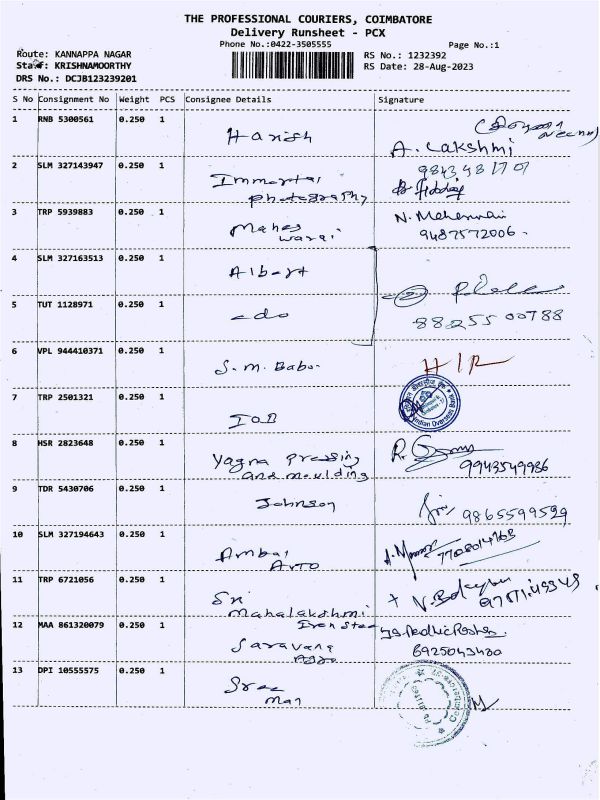 THE PROFESSIONAL COURIERS, COIMBATORE
Delivery Runsheet - PCX
Phone No.:0422-3505555
Page No.:1
Route: KANNAPPA NAGAR
Staff: KRISHNAMOORTHY
DRS No.: DCJB123239201
RS No.: 1232392
RS Date: 28-Aug-2023
S No Consignment No Weight PCS Consignee Details Signature
1 RNB 5300561 0.250 1 Harish A. LAKSHMI
2 SLM 327143947 0.250 1 Immortal
photography
3 TRP 5939883 0.250 1 Mahes N. Maheswari
warai 9487572006.
4 SLM 327163513 0.250 1 Albert
5 TUT 1128971 0.250 1 -do 88255 00788
6 VPL 944410371 0.250 1 S.M. Babu. HIR
7 TRP 2501321 0.250 1 IOB Indian Overseas Bank
8 HSR 2823648 0.250 1 Yagna pressing
and moulding 9943549986
9 TDR 5430706 0.250 1 Johnson 9865599599
10 SLM 327194643 0.250 1 Ambal
Auto
11 TRP 6721056 0.250 1 Sri
Mahalakshmi
Iron Steel
12 MAA 861320079 0.250 1 Saravana
8925043480
13 DPI 10555575 0.250 1 Sree
Mar